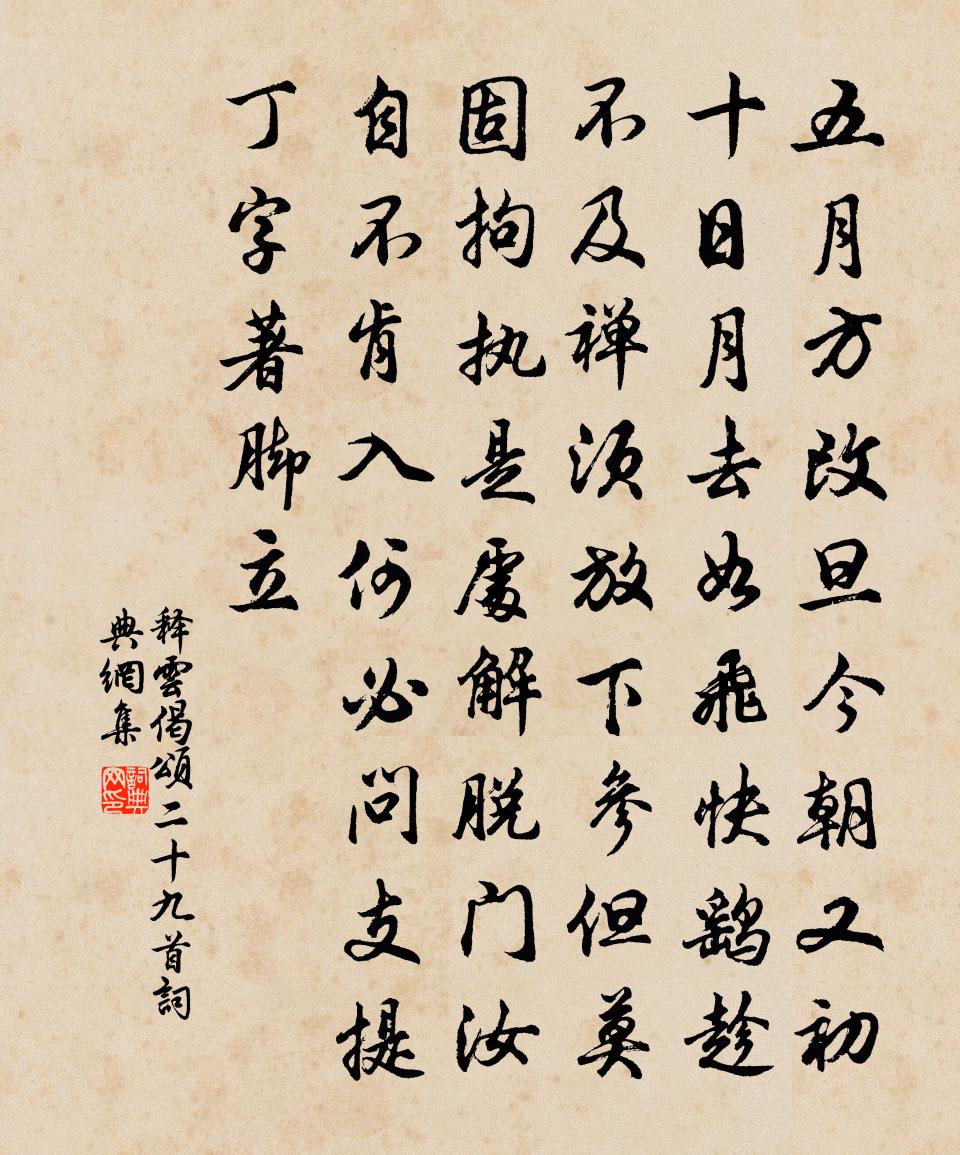 五月方改旦今朝又初
十日月去如飛快鷂趁
不及禅須放下參但莫
固拘执是處解脱门汝
自不肯入何必问支提
丁字著脚立
释雲偈頌二十九首詞
典網集
詞典网印